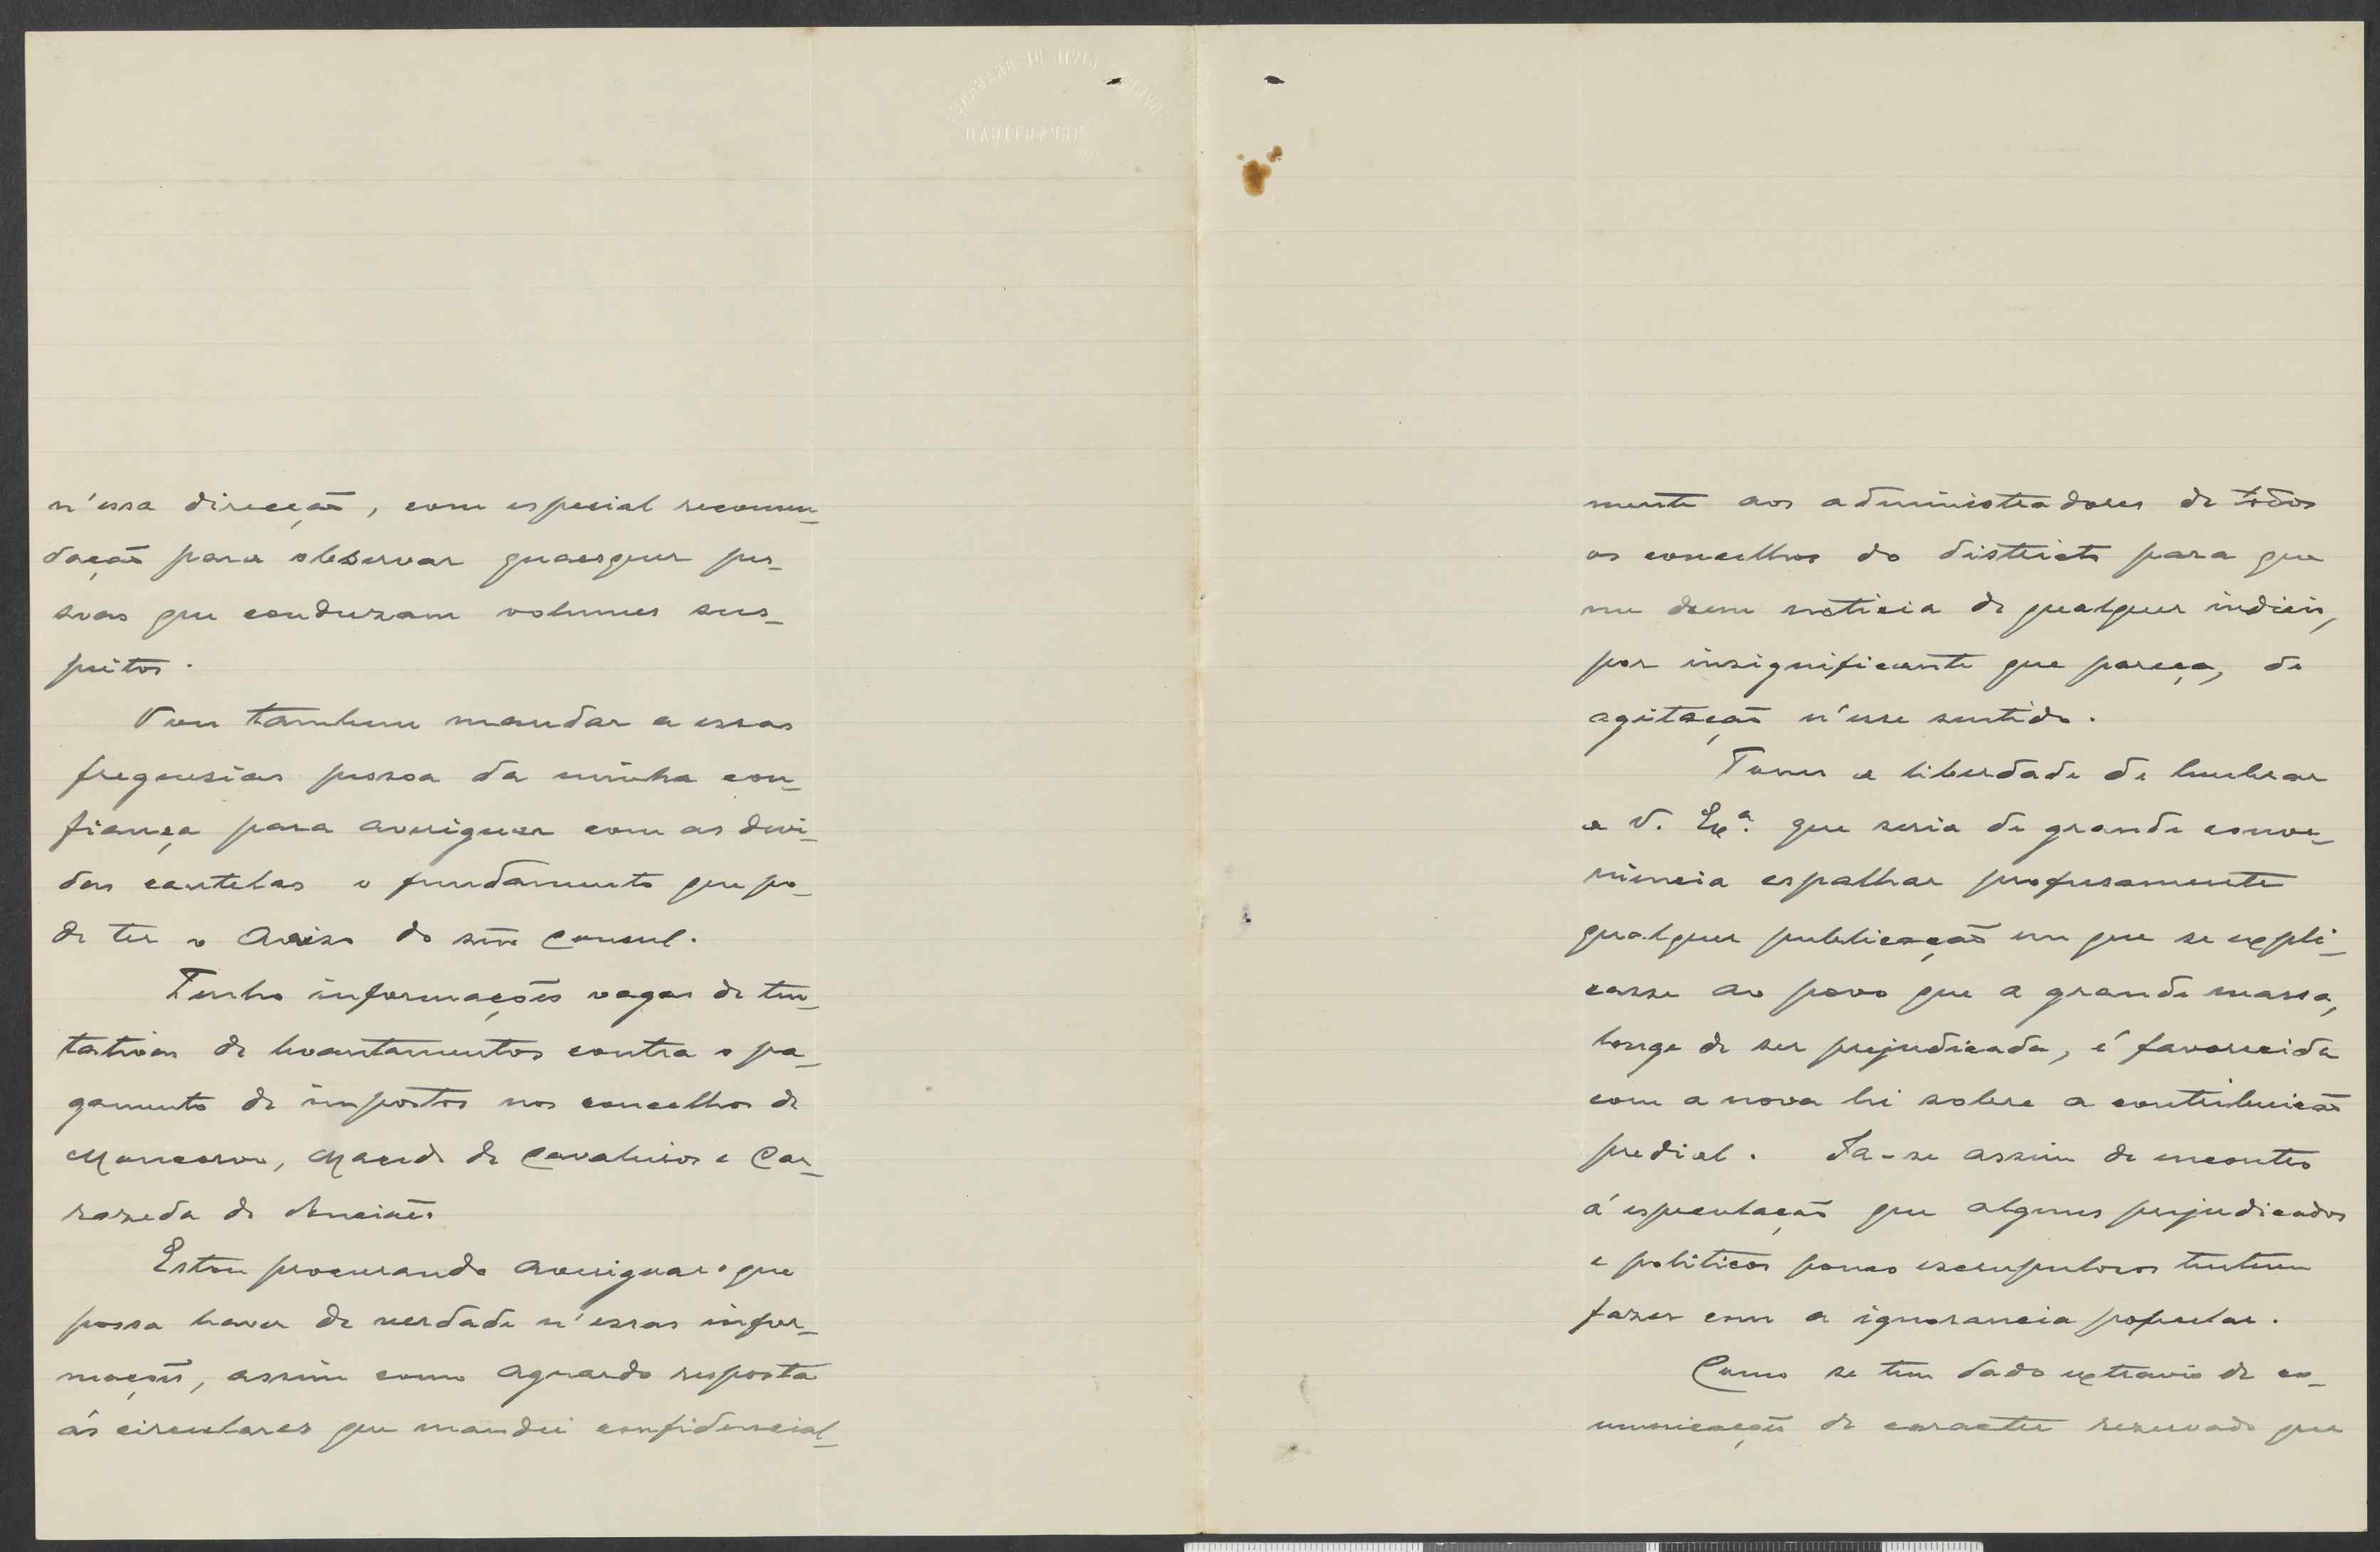 n'essa direcção, com especial recomen_
dação para observar quaesquer pes_
soas que conduzam volumes sus_
peitos.
Vou tambem mandar a essas
freguesias pessoa da minha con_
fiança para averiguar com as devi_
das cautelas o fundamento que po_
de ter o aviso do snr consul.
Tenho informações vagas de ten_
tativas de levantamentos contra o pa_
gamento de impostos nos concelhos de
Moncorvo, Macedo de Cavaleiros e Car_
razeda de Anciães
Estou procurando averiguar o que
possa haver de verdade n'essas infor_
mações, assim como aguardo resposta
ás circulares que mandei confidencial_
mente aos administradores de todos
os concelhos do districto para que
me deem noticia de qualquer indicio,
por insignificante que pareça, de
agitação n'esse sentido.
Tomo a liberdade de lembrar
a V. Exª. que seria de grande conve_
niencia espalhar profusamente
qualquer publicação em que se expli_
casse ao povo que a grande massa,
longe de ser prejudicada, é favorecida
com a nova lei sobre a contribuição
predial. Ia-se assim de encontro
á especulação que alguns prejudicados
e politicos pouco escrupulosos tentem
fazer com a ignorancia popular.
Como se tem dado extravio de co_
municações de caracter reservado que